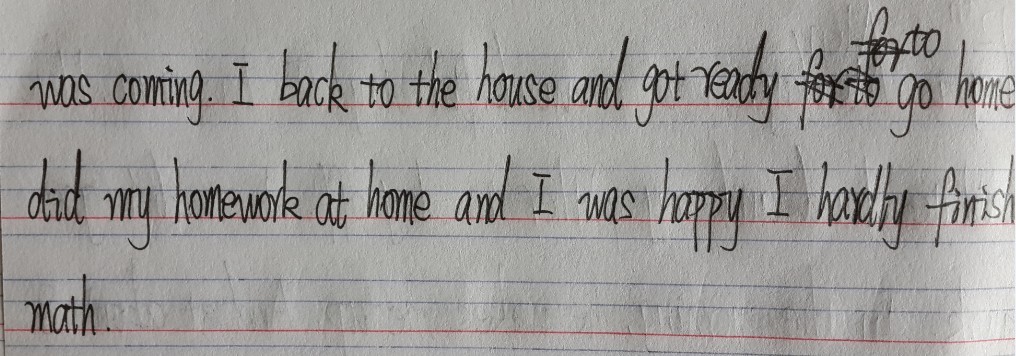 was coming. I back to the house and got ready to go home
did my homework at home and I was happy I hardly finish
math.